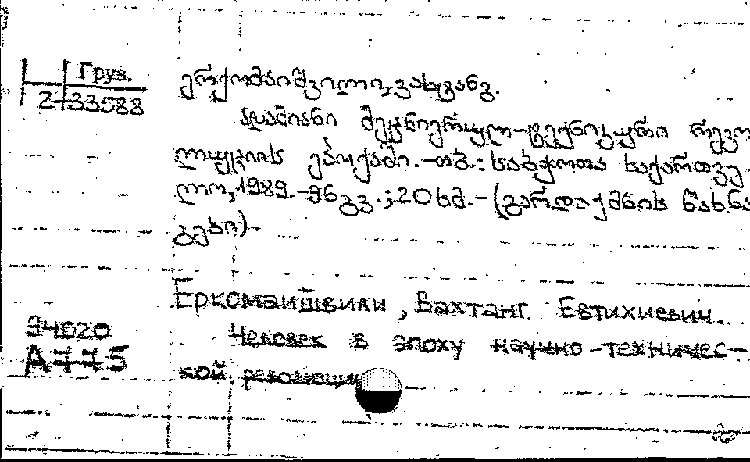 Груз.
2-33588
ერქომაიშვილი, ვახტანგ.
ადამიანი მეცნიერულ-ტექნიკური რევო
ლუციის ეპოქაში.-თბ.: საბჭოთა საქართვე
ლო, 1989.-96გვ.; 20სმ.-(გარდაქმნის
გეზი).
Еркомаишвили, Вахтанг Евтихиевич.
94020
Человек в эпоху научно-техничес-
A775
кой революции